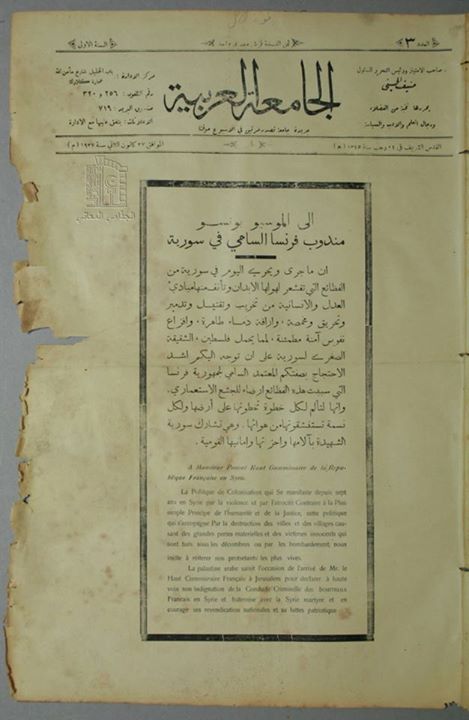 العدد ٣
السنة الاولى
صاحب الامتياز ورئيس التحرير المسؤول
منيف الحسيني
يحررها نخبة من الفضلاء
ورجال العلم والادب والسياسة
الجامعة العربية
جريدة جامعة تصدر مرتين في الاسبوع موقتا
مركز الادارة:
رقم التلفون: ٢٥٦ و ٣٢٠
صندوق البريد: ٧١٩
الاعلانات: يتفق عليها مع الادارة
القدس الشريف في ٢٤ رجب سنة ١٣٤٥ (ھ)
الموافق ٢٧ كانون الثاني سنة ١٩٢٧ (م)
الى الموسيو بونسو
مندوب فرنسا السامي في سورية
ان ما جرى ويجري اليوم في سورية من
الفظائع التي تقشعر لهولها الابدان وتأنف منها مبادئ
العدل والانسانية من تخريب وتقتيل وتدمير
وتحريق ومخمصة، واراقة دماء طاهرة، وافزاع
نفوس آمنة مطمئنة، لمما يحمل فلسطين، الشقيقة
الصغرى لسورية على ان توجه اليكم اشد
الاحتجاج بصفتكم المعتمد السامي لجمهورية فرنسا
التي سببت هذه الفظائع ارضاء للجشع الاستعماري.
وانها لتألم لكل خطوة تخطونها على أرضها ولكل
نسمة تستنشقونها من هوائها. وهي تشارك سورية
الشهيدة بآلامها واحزانها وامانيها القومية.
A Monsieur Poncot Haut Commissaire de la Repu-
blique Française en Syrie.
La Politique de Colonisation qui Se manifeste depuis sept
ans en Syrie par la violence et par l'atrocité Contraire à la Plus
simple Principe de l'humanité et de la Justice, cette politique
qui s'accompagne Par la destruction des villes et des villages cau-
sant des grandes pertes materielles et des victimes innocents qui
sont tués sous les décombres ou par les bombardement, nous
incite à réiterer nos protestants les plus vives.
La palestine arabe saisit l'occasion de l'arrivé de Mr. le
Haut Commissaire Français à Jerusalem pour declarer à haute
voix son indignation de la Conduite Criminelle des bourreaux
Francais en Syrie et fraternise avec la Syrie martyre et en
courage ses revendication nationales et sa luttes patriotique